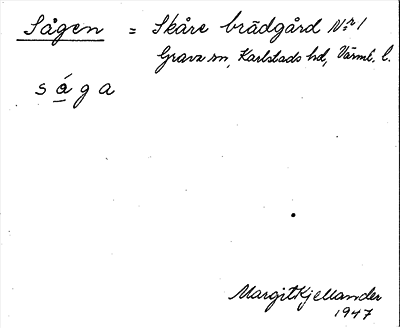 Sågen = Skåre brädgård Nr 1
Grava sn, Karlstads hd, Värml. l.
sága
Margit Kjellander
1947